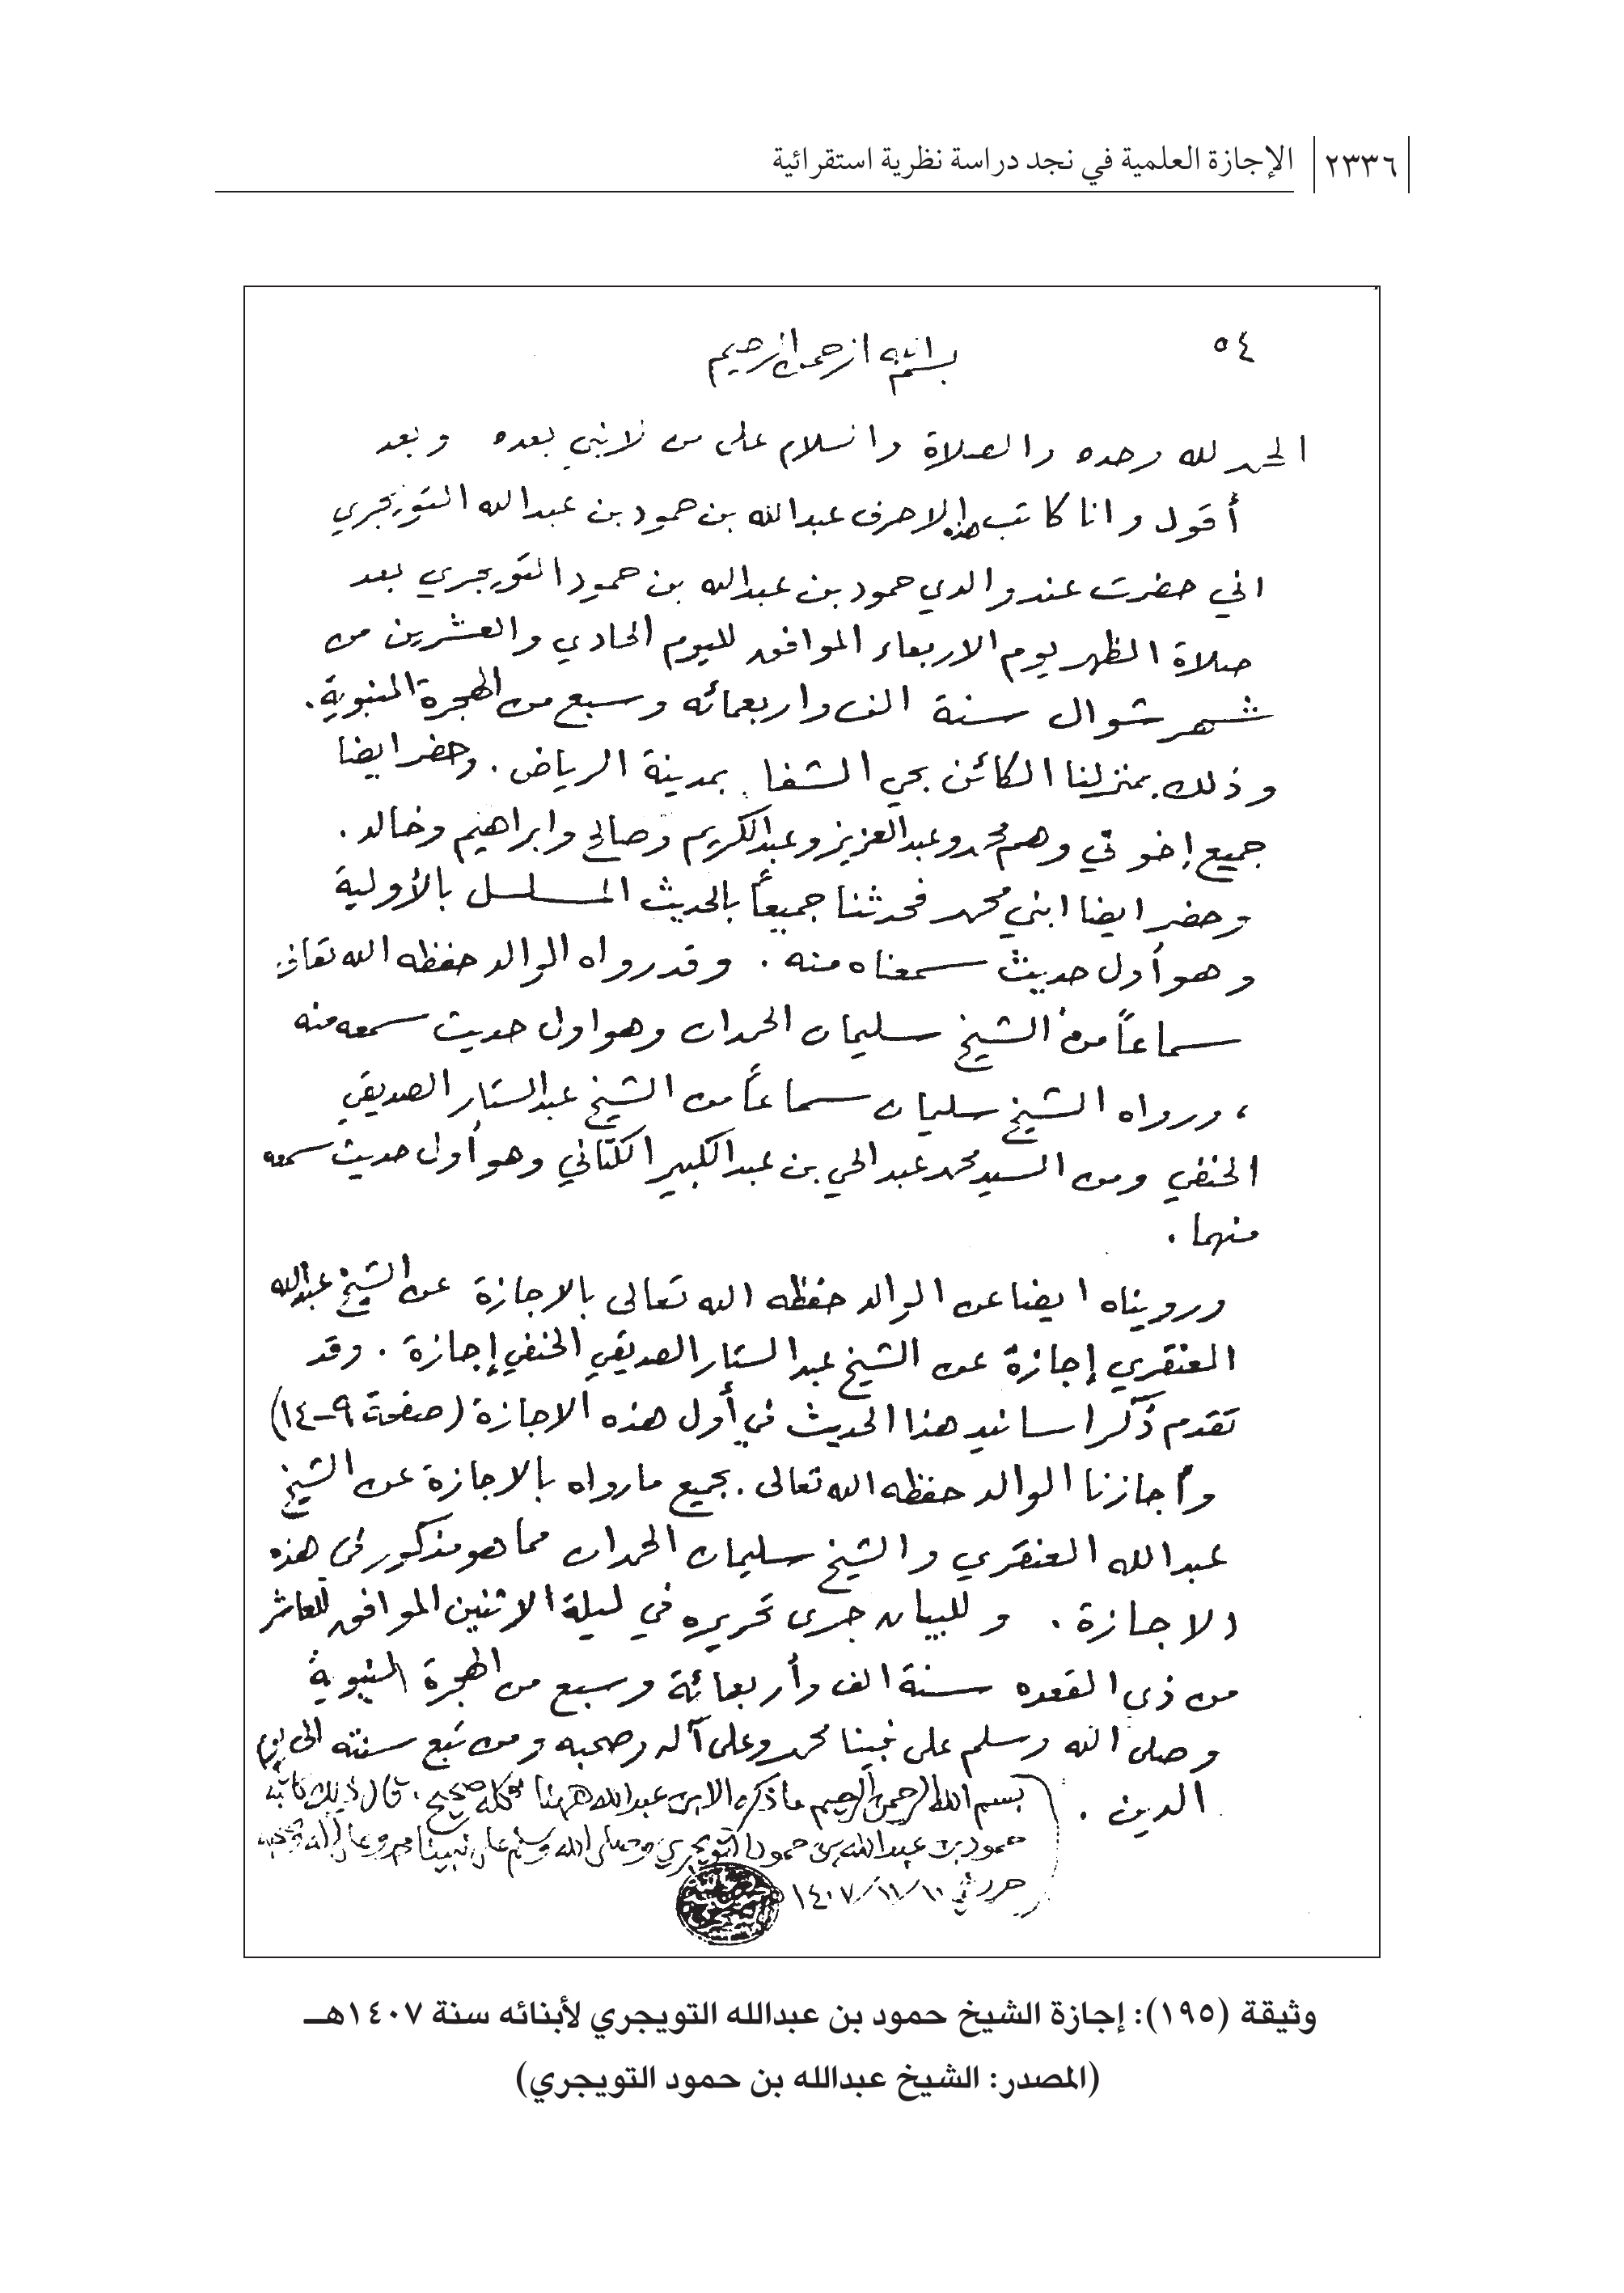 ٢٣٣٦ الإجازة العلمية في نجد دراسة نظرية استقرائية
٥٤
بسم الله الرحمن الرحيم
الحمد لله وحده والصلاة والسلام على من لا نبي بعده وبعد
أقول وانا كاتب هذه الاحرف عبدالله بن حمود بن عبدالله التويجري
اني حضرت عند والدي حمود بن عبدالله بن حمود التويجري بعد
صلاة الظهر يوم الاربعاء الموافق لليوم الحادي والعشرين من
شهر شوال سنة الف واربعمائه وسبع من الهجرة النبوية.
وذلك بمنزلنا الكائن بحي الشفا بمدينة الرياض. وحضر ايضا
جميع إخوتي وهم محمد وعبدالعزيز وعبدالكريم وصالح وابراهيم وخالد.
وحضر ايضا ابني محمد فحدثنا جميعاً بالحديث المسلسل بالأولية
وهو أول حديث سمعناه منه. وقد رواه الوالد حفظه الله تعالى
سماعاً من الشيخ سليمان الحمدان وهو اول حديث سمعه منه
، ورواه الشيخ سليمان سماعاً من الشيخ عبدالستار الصديقي
الحنفي ومن السيد محمد عبدالحي بن عبدالكبير الكتاني وهو أول حديث سمعه
منهما.
ورويناه ايضا عن الوالد حفظه الله تعالى بالاجازة عن الشيخ عبدالله
العنقري إجازة عن الشيخ عبدالستار الصديقي الحنفي إجازة. وقد
تقدم ذكر اسانيد هذا الحديث في أول هذه الاجازة (صفحة ٩-١٤)
وأجازنا الوالد حفظه الله تعالى بجميع مارواه بالاجازة عن الشيخ
عبدالله العنقري والشيخ سليمان الحمدان مما هو مذكور في هذه
الاجازة. وللبيان جرى تحريره في ليلة الاثنين الموافق للعاشر
من ذي القعده سنة الف وأربعمائة وسبع من الهجرة النبوية
وصلى الله وسلم على نبينا محمد وعلى آله وصحبه ومن تبع سنته الى يوم
الدين.
بسم الله الرحمن الرحيم ما ذكره الابن عبدالله ههنا فكله صحيح. قال ذلك كاتبه
حمود بن عبدالله بن حمود التويجري وصلى الله وسلم على نبينا محمد وعلى آله وصحبه
حرر في ١٤٠٧/١١/١٠
وثيقة (١٩٥): إجازة الشيخ حمود بن عبدالله التويجري لأبنائه سنة ١٤٠٧هـ
(المصدر: الشيخ عبدالله بن حمود التويجري)